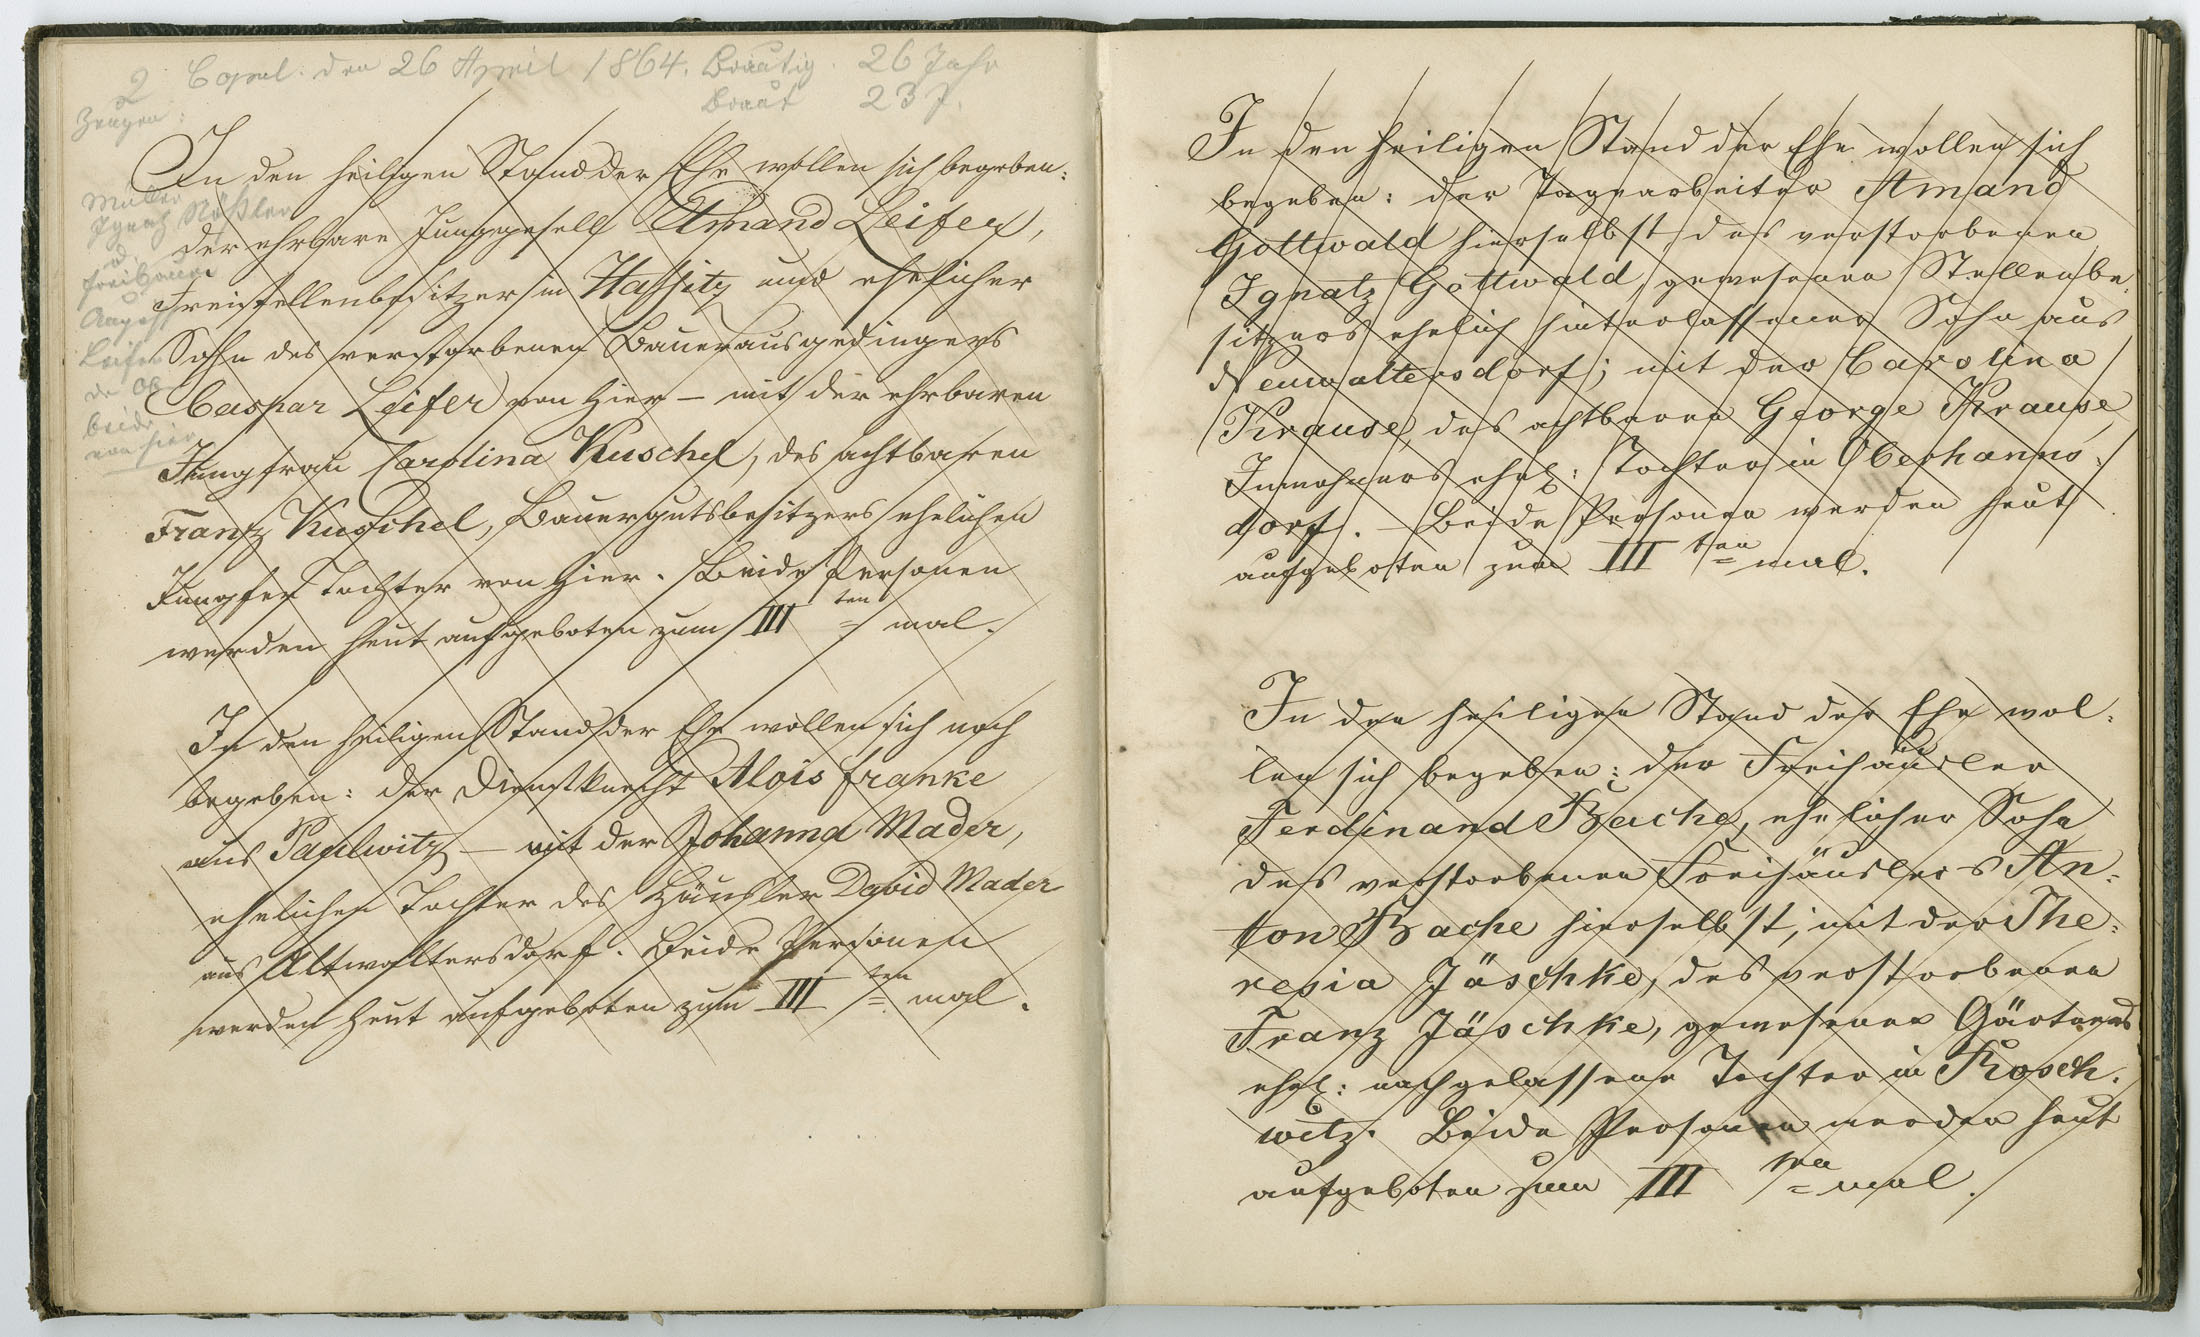 2 Copul. den 26 April 1864. Bräutig. 26 Jahr
Braut 23 J.
Zeugen:
Müller
Ignatz Rößler
d.
Freibauer
August
Leifer
beide
von hier
In den heiligen Stand der Ehe wollen sich begeben:
der ehrbare Junggesell Amand Leifer,
Freistellenbesitzer in Hassitz und ehelicher
Sohn des verstorbenen Bauerausgedingers
Caspar Leifer von hier – mit der ehrbaren
Jungfrau Carolina Kuschel, des achtbaren
Franz Kuschel, Bauergutsbesitzers ehelichen
Jungfer Tochter von hier. Beide Personen
werden heut aufgeboten zum III ten = mal.
In den heiligen Stand der Ehe wollen sich noch
begeben: der Dienstknecht Alois Franke
aus Paulwitz – mit der Johanna Mader,
ehelichen Tochter des Häusler David Mader
aus Altwaltersdorf. Beide Personen
werden heut aufgeboten zum III ten = mal.
In den heiligen Stand der Ehe wollen sich
begeben: der Tagearbeiter Amand
Gottwald hierselbst des verstorbenen
Ignatz Gottwald, gewesenen Stellenbe-
sitzers ehelich hinterlassener Sohn aus
Neuwaltersdorf; mit der Carolina
Krause, des achtbaren George Krause,
Inwohners ehel: Tochter in Oberhanns-
dorf. – Beide Personen werden heut
aufgeboten zum III ten = mal.
In den heiligen Stand der Ehe wol-
len sich begeben: der Freihäusler
Ferdinand Bache, ehelicher Sohn
des verstorbenen Freihäuslers An-
ton Bache hierselbst, mit der The-
resia Jäschke, des verstorbenen
Franz Jäschke, gewesenen Gärtners
ehel: nachgelassene Tochter in Rosch-
witz. Beide Personen werden heut
aufgeboten zum III ten = mal.